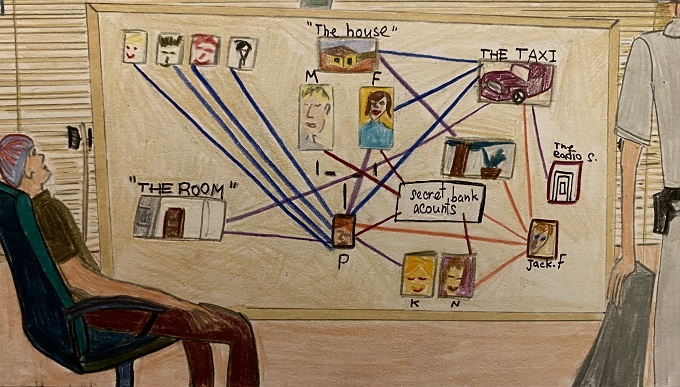 "The house"
THE TAXI
M F
The
Radio S.
"THE ROOM"
secret bank
acounts
P
Jack.F
K N